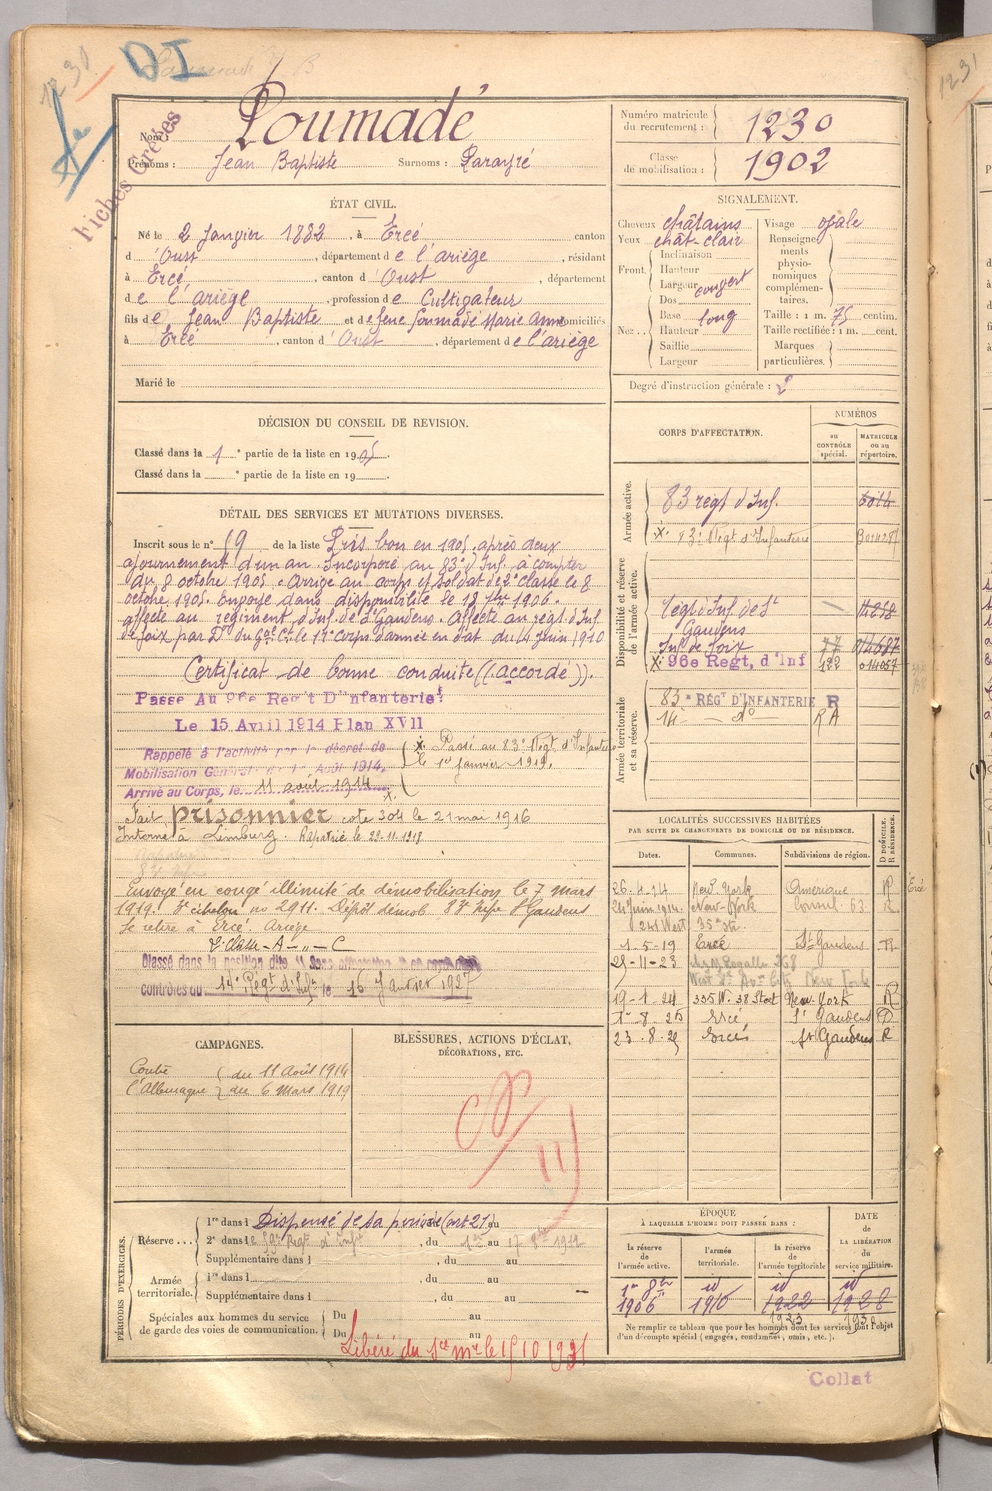 1230
DI
Fiches Créées
Nom : Loumadé
Prénoms : Jean Baptiste Surnoms :
Numéro matricule du recrutement : 1230
Classe de mobilisation : 1902
ÉTAT CIVIL.
Né le 2 Janvier 1882, à Ercé canton
d'Oust, département de l'ariège, résidant
à Ercé, canton d'Oust, département
de l'ariège, profession de Cultivateur
fils de Jean Baptiste et de feue Loumadé Marie Anne domiciliés
à Ercé, canton d'Oust, département de l'ariège
Marié le
SIGNALEMENT.
Cheveux châtains
Yeux chât-clair
Front. Inclinaison
Hauteur
Largeur couvert
Nez .. Dos
Base long
Hauteur
Saillie
Largeur
Visage ovale
Renseignements physionomiques complémentaires.
Taille : 1 m. 75 centim.
Taille rectifiée : 1 m. cent.
Marques particulières.
Degré d'instruction générale : 2
DÉCISION DU CONSEIL DE REVISION.
Classé dans la 1e partie de la liste en 1905.
Classé dans la e partie de la liste en 19 .
DÉTAIL DES SERVICES ET MUTATIONS DIVERSES.
Inscrit sous le n° 19 de la liste Pris bon en 1905 après deux
ajournement d'un an. Incorporé au 83e d'Inf. à compter
du 8 octobre 1905. Arrivé au corps et Soldat de 2e classe le 8
octobre 1905. Envoyé dans disponibilité le 18 1906.
affecté au régiment d'Inf. de St Gaudens. Affecté au régt d'Inf
de foix par Don du Gal Ct le 17e Corps d'armée en dat du 4 Juin 1910
Certificat de bonne conduite ((accordé)).
Passé Au 96e Reg't D'Infanterie
Le 15 Avril 1914 Plan XVII
Rappelé à l'activité par le décret de
Mobilisation Générale du 1er Août 1914.
Arrivé au Corps, le 11 août 1914
X. Passé au 83e Régt d'Infanterie
le 1er Janvier 1919.
Fait prisonnier cote 304 le 21 mai 1916
Interné à Limburg. Rapatrié le 22-11-1918
Envoyé en congé illimité de démobilisation le 7 mars
1919. 3e échelon no 2911. Dépôt démob 83e Rife St Gaudens
Se retire à Ercé Ariège
Classé dans la position dite "Sans affectation"
contrôles du 14e Régt d'Infie le 16 Janvier 1927
CORPS D'AFFECTATION.
NUMÉROS
au CONTRÔLE spécial.
MATRICULE ou au répertoire.
Armée active.
83 régt d'Inf.
X. 83e Régt d'Infanterie
Disponibilité et réserve de l'armée active.
régt d'Inf de St Gaudens
Inf. de foix 77 014687
X. 96e Regt, d'Inf 122 014057
Armée territoriale et sa réserve.
83e RÉGt D'INFANTERIE R
14 - do - RA
LOCALITÉS SUCCESSIVES HABITÉES
PAR SUITE DE CHANGEMENTS DE DOMICILE OU DE RÉSIDENCE.
Dates. Communes. Subdivisions de région. D DOMICILE. R RÉSIDENCE.
26-4-14 New-York Amérique R Ercé
24 juin 1914 New-York Consul. 63 R
241 West 35e Str.
1-5-19 Ercé St Gaudens R
25-11-23 268
19-1-24 335 W. 38 Street New-York R
1-8-25 Ercé St Gaudens D
23-8-25 Ercé St Gaudens R
CAMPAGNES.
Contre l'Allemagne du 11 Août 1914
au 6 Mars 1919
BLESSURES, ACTIONS D'ÉCLAT,
DÉCORATIONS, ETC.
PÉRIODES D'EXERCICES.
Réserve... 1re dans l Dispensé de sa période (art 21) au
2e dans l , du 1er au 17 1912
Supplémentaire dans l , du au
Armée territoriale. 1re dans l , du au
Supplémentaire dans l , du au
Spéciales aux hommes du service de garde des voies de communication. Du au
Du au
Libéré du Sce Mre le 15 10 1931
ÉPOQUE
À LAQUELLE L'HOMME DOIT PASSER DANS :
la réserve de l'armée active.
l'armée territoriale.
la réserve de l'armée territoriale
DATE DE LA LIBÉRATION du service militaire.
1er 8bre 1906
id 1916
id 1922
id 1928
1923
Ne remplir ce tableau que pour les hommes dont les services font l'objet
d'un décompte spécial (engagés, condamnés, omis, etc.).
Collat